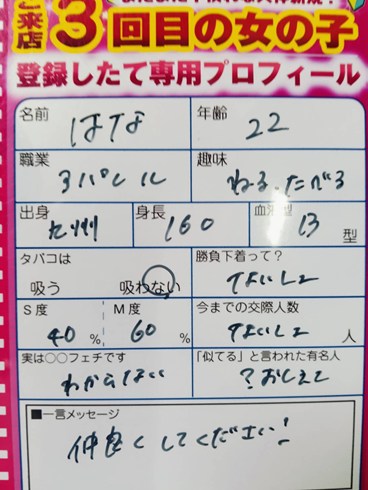 ご来店
3回目の女の子
登録したて専用プロフィール
名前 はな 年齢 22
職業 アパレル 趣味 ねる、たべる
出身 九州 身長 160 血液型 B型
タバコは 吸う 吸わない 勝負下着って? ないしょ
S度 40% M度 60% 今までの交際人数 ないしょ 人
実は○○フェチです わからない 「似てる」と言われた有名人 ?おしえて
■一言メッセージ
仲良くしてください!